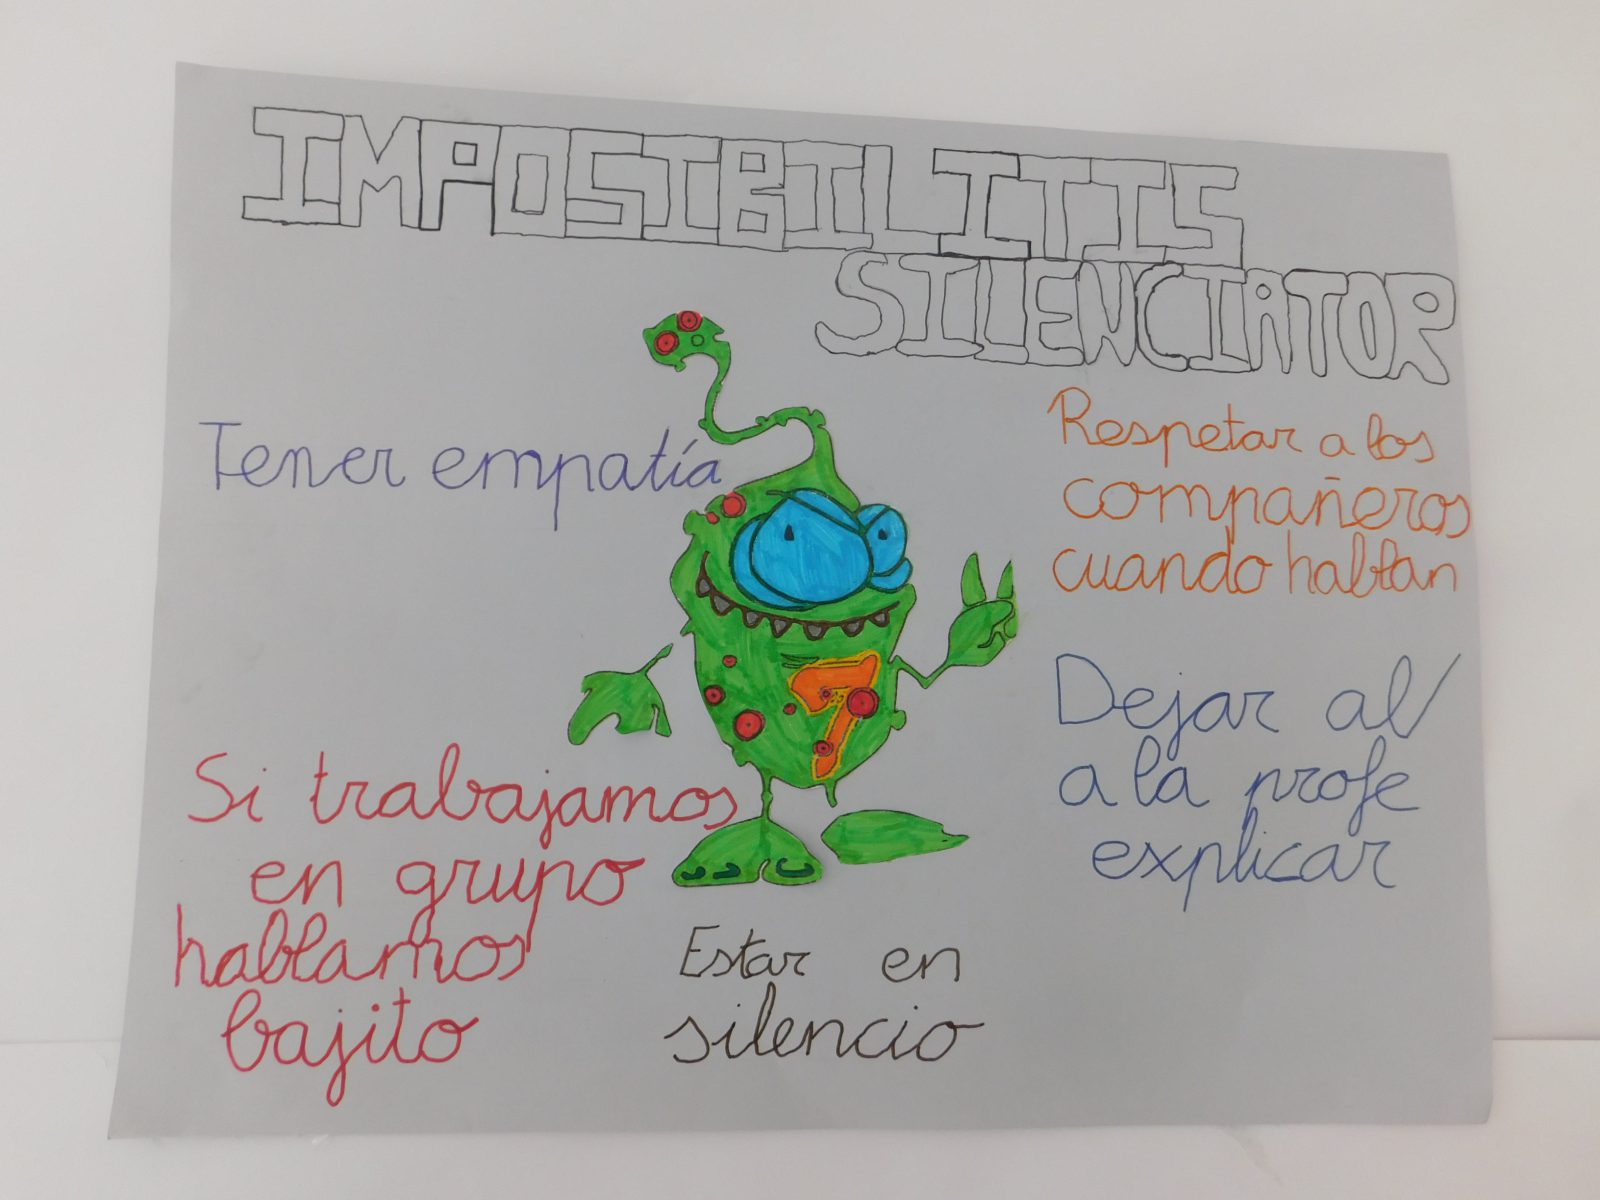 IMPOSIBILITIS
SILENCIATOR
Tener empatía
Respetar a los
compañeros
cuando hablan
7
Dejar al
a la profe
explicar
Si trabajamos
en grupo
hablamos
bajito
Estar en
silencio